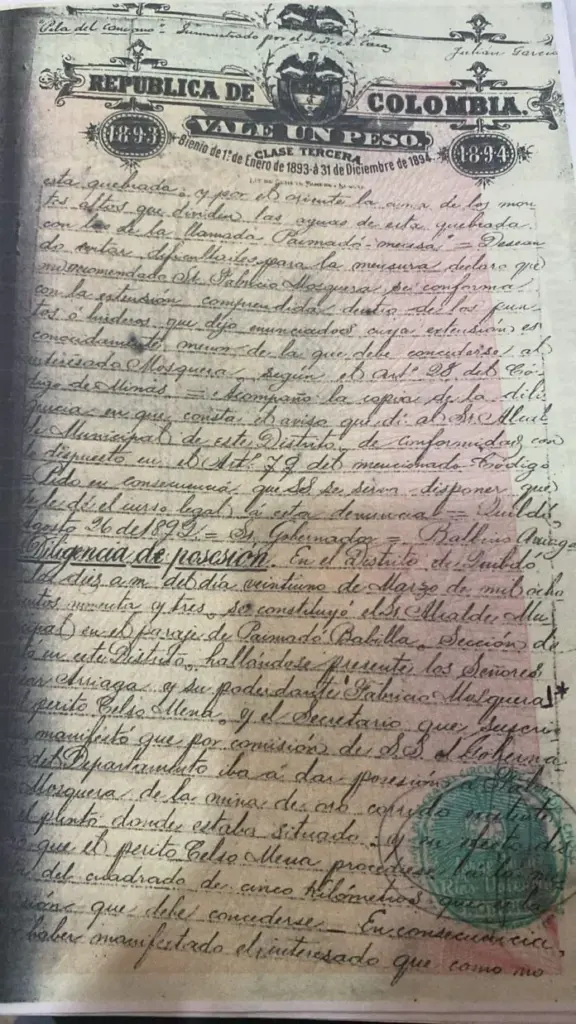 "Pila del Comino" - Suministrado por el Sr. Fco. Cara
Julian Garcia
REPUBLICA DE COLOMBIA.
VALE UN PESO.
1893 CLASE TERCERA 1894
Bienio de 1º de Enero de 1893 á 31 de Diciembre de 1894
esta quebrada; y por el oriente la cima de los mon
tes altos que dividen las aguas de esta quebrada
con las de la llamada Paimadó-mecesa" = Desean
do evitar dificultades para la mensura declaro que
mi recomendado Sr. Fabricio Mosquera se conforma
con la estension comprendida dentro de los pun
tos ó linderos que dejo enunciados cuya extension es
conocidamente menor de la que debe concederse al
interesado Mosquera, según el Artº 28 del Có
digo de Minas = Acompaño la copia de la dili
gencia en que consta el aviso que di al Sr. Alcal
de Municipal de este Distrito, de conformidad con
lo dispuesto en el Artº 79 del mencionado Código
= Pido en consecuencia que SS se sirva disponer que
se le dé el curso legal a esta denuncia = Quibdó
Agosto 26 de 1892 = Sr. Gobernador = Balbino Arriaga
Diligencia de posesión. En el Distrito de Quibdó
a las diez a.m. del día veintiuno de Marzo de mil ocho
cientos noventa y tres, se constituyó el Sr Alcalde Mu
nicipal en el paraje de Paimadó Babilla, Sección de
en este Distrito, hallándose presente los Señores
Arriaga y su poderdante Fabricio Mosquera 1*
el perito Celso Mena, y el Secretario que suscribe
manifestó que por comisión de S.S. el Goberna
del Departamento iba á dar posesión a Fabri
Mosquera de la mina de oro corrido
el punto donde estaba situado y en efecto
que el perito Celso Mena procediese
del cuadrado de cinco kilómetros que es la
sión que debe concederse — En consecuencia,
haber manifestado el interesado que como no